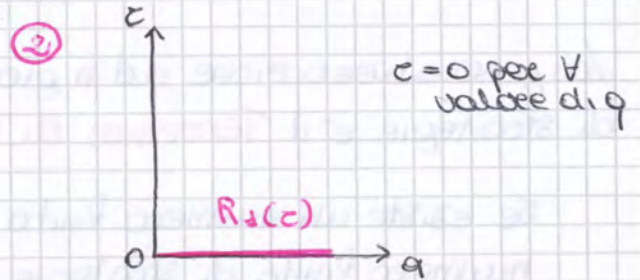 2
c
c=0 per ∀
valore di q
Rd(c)
0
q